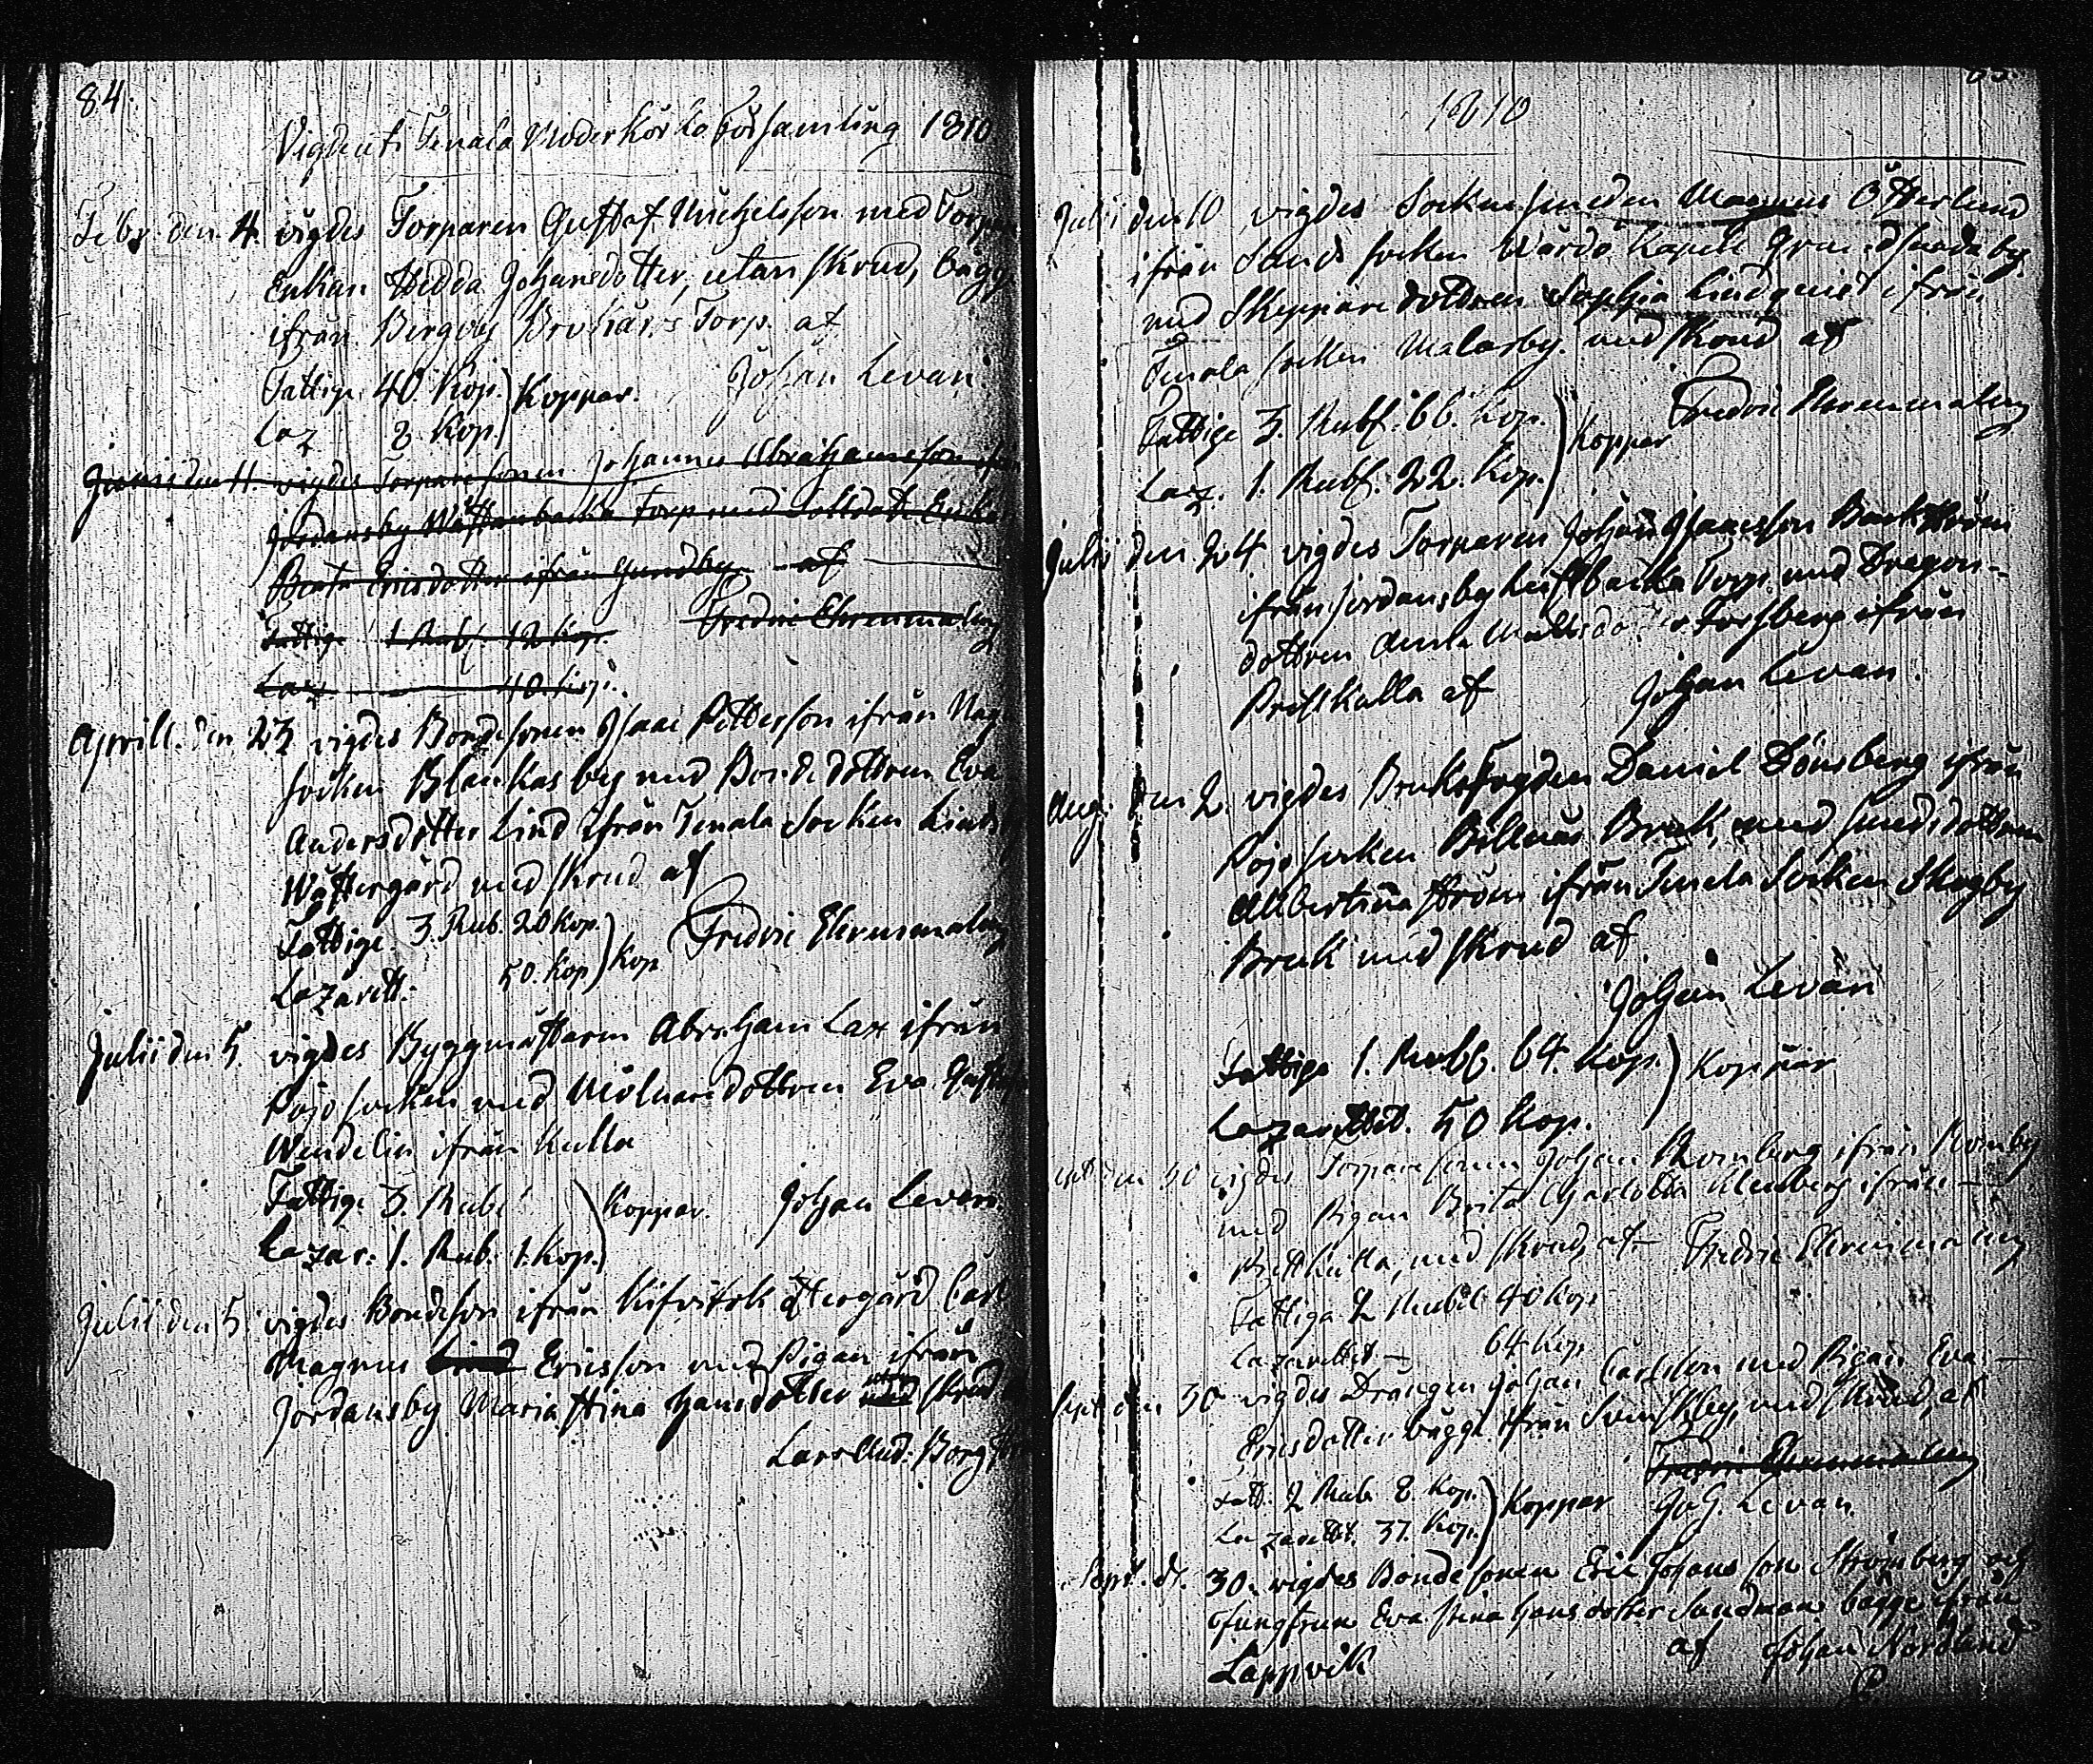 84.
Vigde uti Tenala Moderkörko Församling 1810
Febr. den 4. vigdes Torparen Gustaf Michelsson med Torpare
Enkan Hedda Johansdotter, utan skrud, bägge
ifrån Bergby Torp. af
Fattige 40 Kop. ) Koppar. Johan Levan.
Laz 8 Kop. )
Junii den 11. vigdes Torparesonen Johannes Abrahamsson
Jordansby Torp med Soldate Enka
Beata Ericsdotter ifrån Gundby af
Fattige 1 Rub. 12 Kop. Fredric Ehrenmalm
Laz 40 Kop.
Aprill. den 23 vigdes Bondesonen Isaac Pettersson ifrån
socken Blankas by med Bondedottren Eva
Andersdotter Lind ifrån Tenala Socken
Wästergård med skrud af
Fattige 3. Rub. 20 Kop. ) Kop Fredric Ehrenmalm
Lazarett. 50 Kop )
Julii den 5. vigdes Byggmästaren Abraham Lax ifrån
Pojo socken med Mölnaredottren Eva
Wendelin ifrån Kulla
Fattige 3. Rub. ) Koppar. Johan Levan.
Lazar: 1. Rub. 1. Kop. )
Julii den 5. vigdes Bondeson ifrån Carl
Magnus Lind Ericsson med Pigan ifrån
Jordansby Maria Stina Hansdotter med utan skrud
Lars And: Borgst
1810
Julii den 10 vigdes Sockensmeden Magnus Österlund
ifrån Sunds socken Wårdö Kapell by
med Skepparedottren Sophia Lindquist ifrån
Tenala socken Malarby. med skrud af
Fattige 3. Rubl. 66. Kop. ) Koppar Fredric Ehrenmalm
Laz. 1. Rubl. 22. Kop. )
Julii den 24 vigdes Torparen Johan Isaacsson Backström
ifrån Jordansby Torp med Dragon-
dottren Anna Mattsdotter Forsberg ifrån
Prestkulla af Johan Levan.
Aug. den 2. vigdes Bruksfogden Daniel Dönsberg ifrån
Pojo socken Billnäs Bruk, med smedsdottren
Albertina Ström ifrån Tenala Socken Skogby
Bruk med skrud af
Johan Levan
Fattige 1. Rubl. 64. Kop. ) Koppar
Lazarettet. 50 Kop. )
Sept den 30 vigdes Torparesonen Johan Romberg ifrån Romby
med Pigan Brita Charlotta Alenberg ifrån
Prestkulla, med skrud, af Fredric Ehrenmalm
Fattiga 2 Rubel 40 Kop
Lazarettet 64 Kop
Sept den 30 vigdes Drängen Johan Carlsson med Pigan Eva
Ericsdotter bägge ifrån Svenskby, med skrud, af
Fredric Ehrenmalm
Fatt. 2 Rub. 8. Kop. ) Koppar Joh. Levan.
Lazarettet. 37. Kop. )
Sept. d. 30. vigdes Bondesonen Eric Johansson Strömberg och
Jungfrun Eva Stina Hansdotter Sandman bägge ifrån
Lappvik af Johan Nordlund